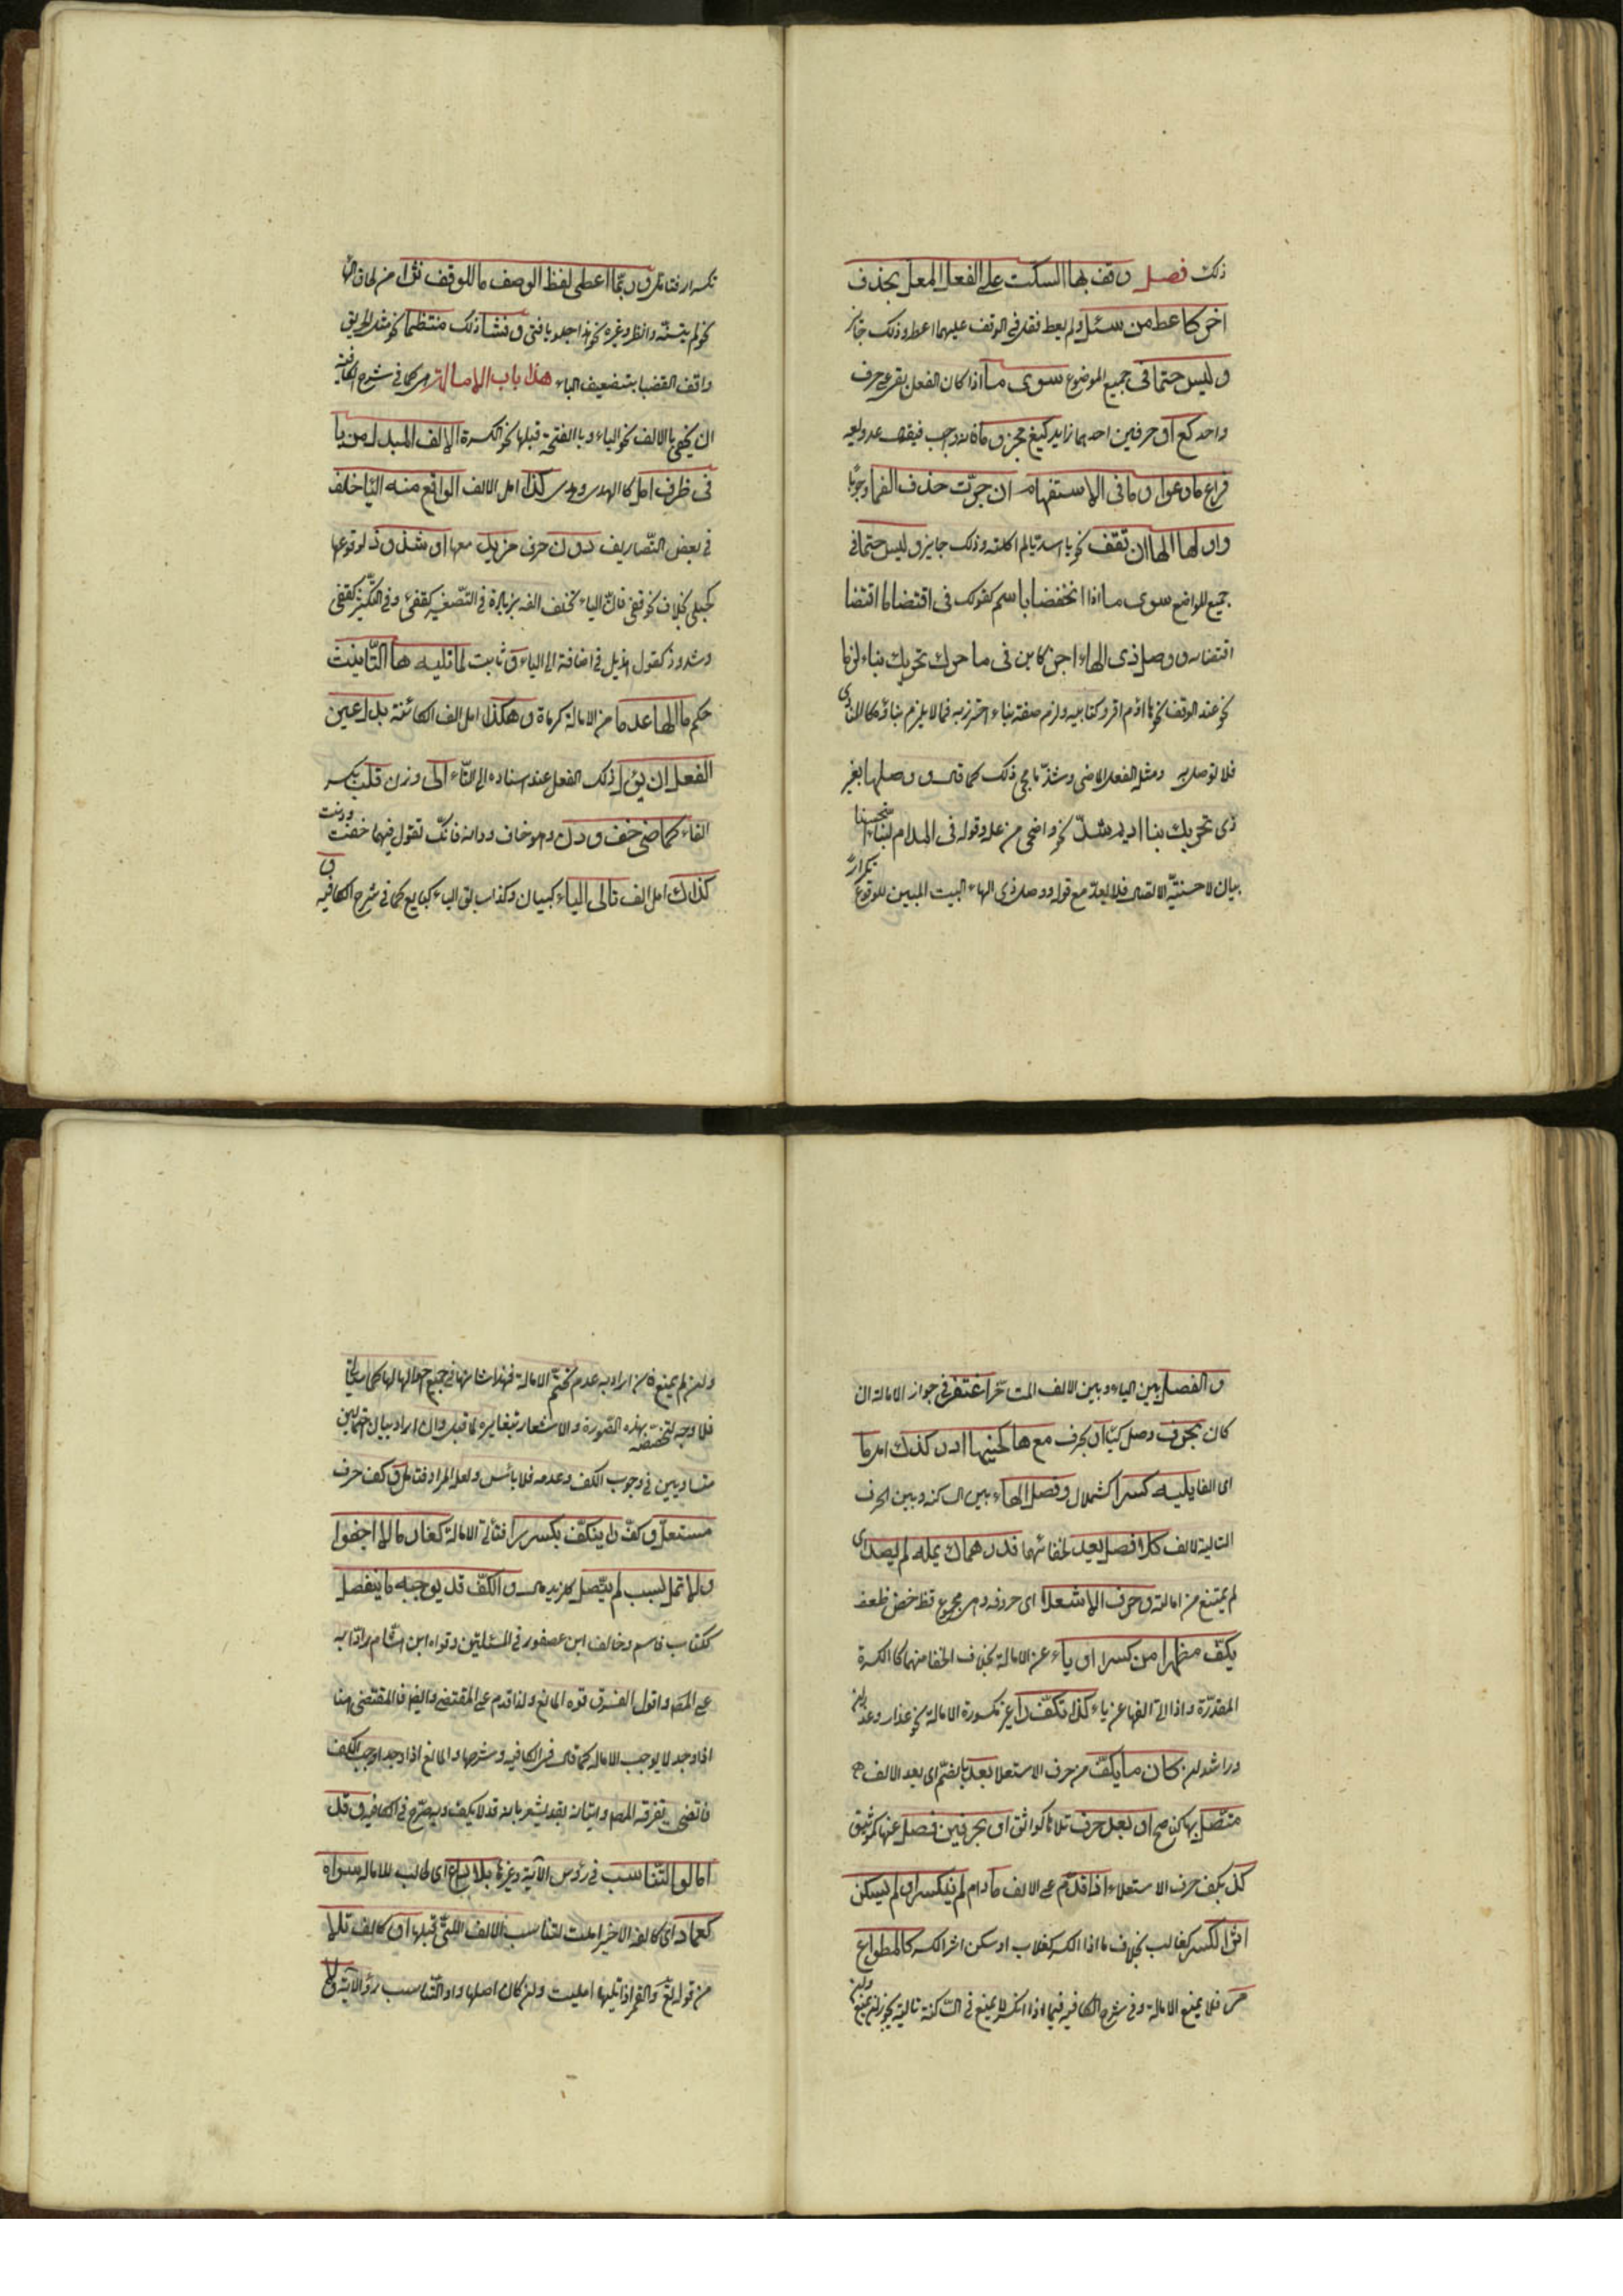 ذلك فصل وقف بها السكت على الفعل المعل بحذف
اخر كاعط من سئل ولم يعط فقل في الوقف عليهما اعطه وذلك جائز
وليس حتما في جميع الموضوع سوى ما اذا كان الفعل بقى على حرف
واحد كع او حرفين احدهما زايد كيع مجزوما فانه واجب فيقف
فراع ما وعوا وما في الاستفهام ان جرّت حذف الفها وجوبًا
واولها الها ان تقف نحو يا اسديا لم اكلته وذلك جايز وليس حتما في
جميع المواضع سوى ما اذا انخفضا باسم كقولك في اقتضا ما اقتضا
اقتضاء ووصل ذى الهاء اجز كاين في ما حرك تحريك بناء لزما
نحو عند الوقف نحو هاؤم اقروا كتابيه ولزم صفة بناء احترز به فما لا يلزم بناؤه كالمنادى
فلا توصل به ومثله الفعل الماضى وشذ ما يجي ذلك كما قال ووصلها بغير
ذى تحريك بنا اديم شذّ نحو واضحى من عله وقوله في المدام استحسنا
بيان لاحسنيّة الاتصال فلا يعدّ مع قوله ووصل ذى الهاء البيت المبين للوقوع تكرارًا
تكرار فتامل وربّما اعطى لفظ الوصل ما للوقف نثرا من لحاق الهاء
نحو لم يتسنّه وانظر وغيره نحو هذا حبلو يا فتى وفشا ذلك منتظما نحو مثل الحريق
وافق القصبا بتضعيف الباء هذا باب الامالة هى كما في شرح الكافية
ان ينحى بالالف نحو الياء وبالفتحة قبلها نحو الكسرة الالف المبدل من يا
في طرف امل كالهدى وهدى كذا امل الالف الواقع منه اليا خلف
في بعض التّصاريف دون حرف مزيد معها او شذوذ لوقوعها
كحبلى بخلاف نحو قفى فان الياء تخلف الفه بزيادة في التّصغير كقفى وفي التكسير كقفى
وشذوذ كقول هذيل في اضافة الى الياء قفى وثابت لما تليه ها التّانيث
حكم ما الها عدما من الامالة كرماة وهكذا امل الف الكائنة بدل عين
الفعل ان يؤل ذلك الفعل عند اسناده الى التّاء الى وزن قلت بكسر
الفاء كماضى خف ودن وهو خاف ودان فانك تقول فيهما خفت ودنت و
كذلك امل الف تالى الياء كبيان وكذا سابق الياء كبايع كما في شرح الكافيه
والفصل بين الياء وبين الالف المتاخّر اغتفر في جواز الامالة ان
كان بحرف وصل كبيان او بحرف مع ها كجيبها ادر كذلك امل ما
اى الفا يليه كسر كشملال وفصل الهاء بين الساكنة وبين الحرف
التالية لالف كلا فصل يعد لخفائها فدرهماك يمله لم يصد اى
لم يمتنع من امالته وحرف الاستعلا اى حروفه وهى مجموع قظ خص ضغط
يكفّ مظهرا من كسر او ياء عن الامالة بخلاف الخفا منهما كالكسرة
المقدّرة واذا الى الفها عن ياء كذا تكفّ را غير مكسورة الامالة نحو عذار وعذاران
وراشد ان كان ما يكفّ من حرف الاستعلا بعد بالضّم اى بعد الالف
متصل بها كناصح او بعد حرف تلاها كواثق او بحرفين فصل عنها كمواثيق
كذا يكف حرف الاستعلاء اذا قدّم على الالف ما دام لم ينكسر او لم يسكن
اثر الكسر كغالب بخلاف ما اذا انكسر كغلاب او سكن اثر الكسر كالمطواع
مر فلا يمنع الامالة وفي شرح الكافيه فيما اذا انكسر لا يمنع في الساكنة تالية يجوز ان يمنع
وان لم يمنع فان اراد به عدم تحتم الامالة فهذا شانها في جميع احوالها كما سياتى
فلا وجه لتخصيصه بهذه الصّورة والاشعار بتغايره لما قبل وان اراد بيان احتمالين
متساويين في وجوب الكف وعدمه فلا بأس ولعل المراد فتامل وكف حرف
مستعل وكفّ را ينكفّ بكسر را فتأتى الامالة كغارما لا اجفوا
ولا تمل لسبب لم يتّصل كلزيد مال والكفّ قد يوجبه ما ينفصل
ككتاب قاسم وخالف ابن عصفور في المسئلتين وقواه ابن هشام رادّا به
على المصـ واقول الفرق قوه المانع ولذا قدم على المقتضى وايضا فالمقتضى هنا
اذا وجد لا يوجب الاماله كما قال في الكافيه وشرحها والمانع اذا وجد اوجب الكف
فاتضى تفرقه المصـ واتيانه بقد يشعر بانه قد لا يكف وبه صرّح في الكافيه وقد
امالوا لتناسب في رؤس الآية وغيرها بلا داع اى طالب للاماله سواه
كعمادا اى كالفه الاخير املت لتناسب الالف اللتى قبلها او كالف تلا
من قوله تعالى والقمر اذا تليها املت وان كان اصلها واو التناسب رؤس الآية ولا